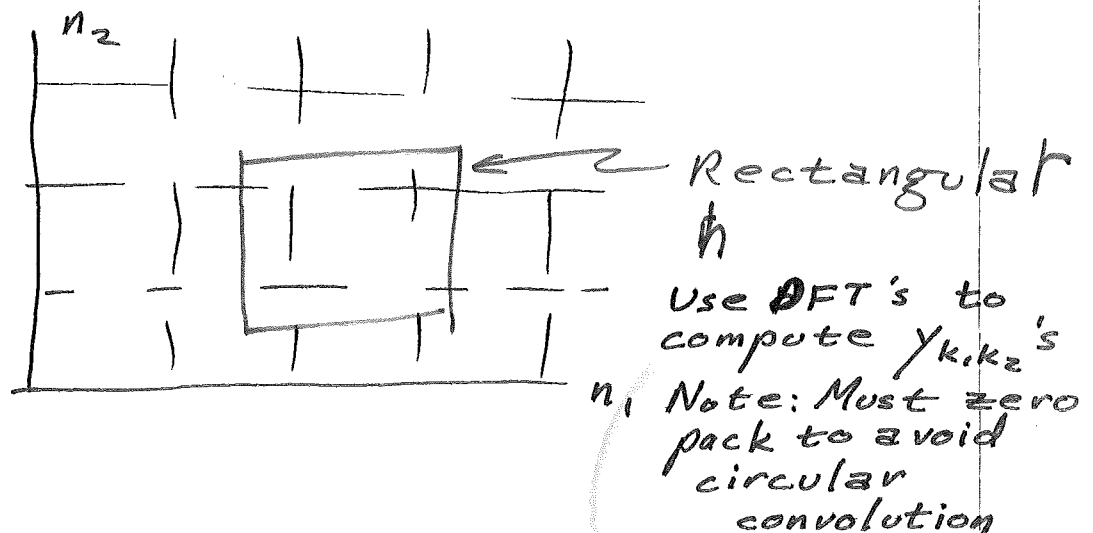 n₂
Rectangular
h
Use DFT's to
compute yₖ₁ₖ₂'s
n₁ Note: Must zero
pack to avoid
circular
convolution